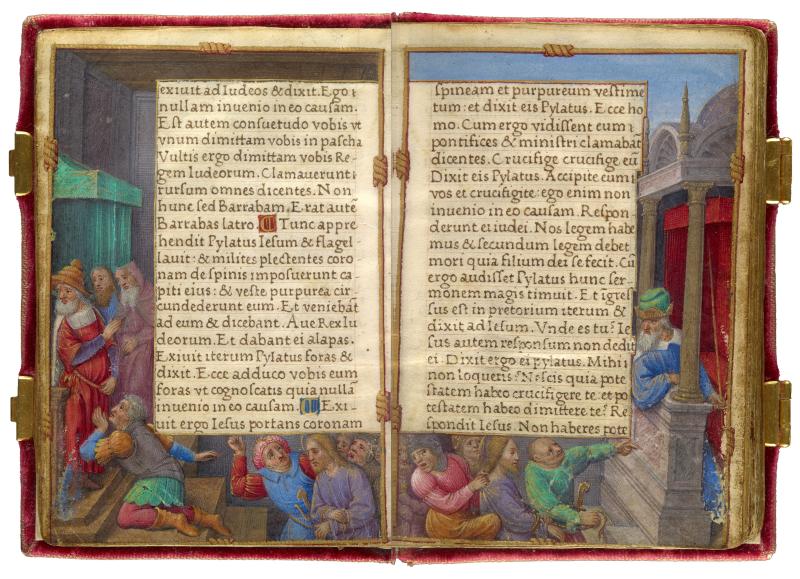 exiuit ad Iudeos & dixit. Ego
nullam inuenio in eo causam.
Est autem consuetudo vobis vt
vnum dimittam vobis in pascha
Vultis ergo dimittam vobis Re
gem Iudeorum. Clamauerunt
rursum omnes dicentes. Non
hunc sed Barrabam. Erat autē
Barrabas latro. Tunc appre
hendit Pylatus Iesum & flagel
lauit: & milites plectentes coro
nam de spinis imposuerunt ca
piti eius: & veste purpurea cir
cundederunt eum. Et veniebāt
ad eum & dicebant. Aue Rex Iu
deorum. Et dabant ei alapas.
Exiuit iterum Pylatus foras &
dixit. Ecce adduco vobis eum
foras vt cognoscatis quia nullā
inuenio in eo causam. Exi
uit ergo Iesus portans coronam
spineam et purpureum vestime
tum: et dixit eis Pylatus. Ecce ho
mo. Cum ergo vidissent eum
pontifices & ministri clamabāt
dicentes. Crucifige crucifige eū
Dixit eis Pylatus. Accipite eum
vos et crucifigite: ego enim non
inuenio in eo causam. Respon
derunt ei iudei. Nos legem habe
mus & secundum legem debet
mori quia filium dei se fecit. Cū
ergo audisset Pylatus hunc ser
monem magis timuit. Et igres
sus est in pretorium iterum &
dixit ad Iesum. Vnde es tu? Ie
sus autem responsum non dedit
ei. Dixit ergo ei pylatus. Mihi
non loqueris? Nescis quia pote
statem habeo crucifigere te: et po
testatem habeo dimittere te? Re
spondit Iesus. Non haberes pote